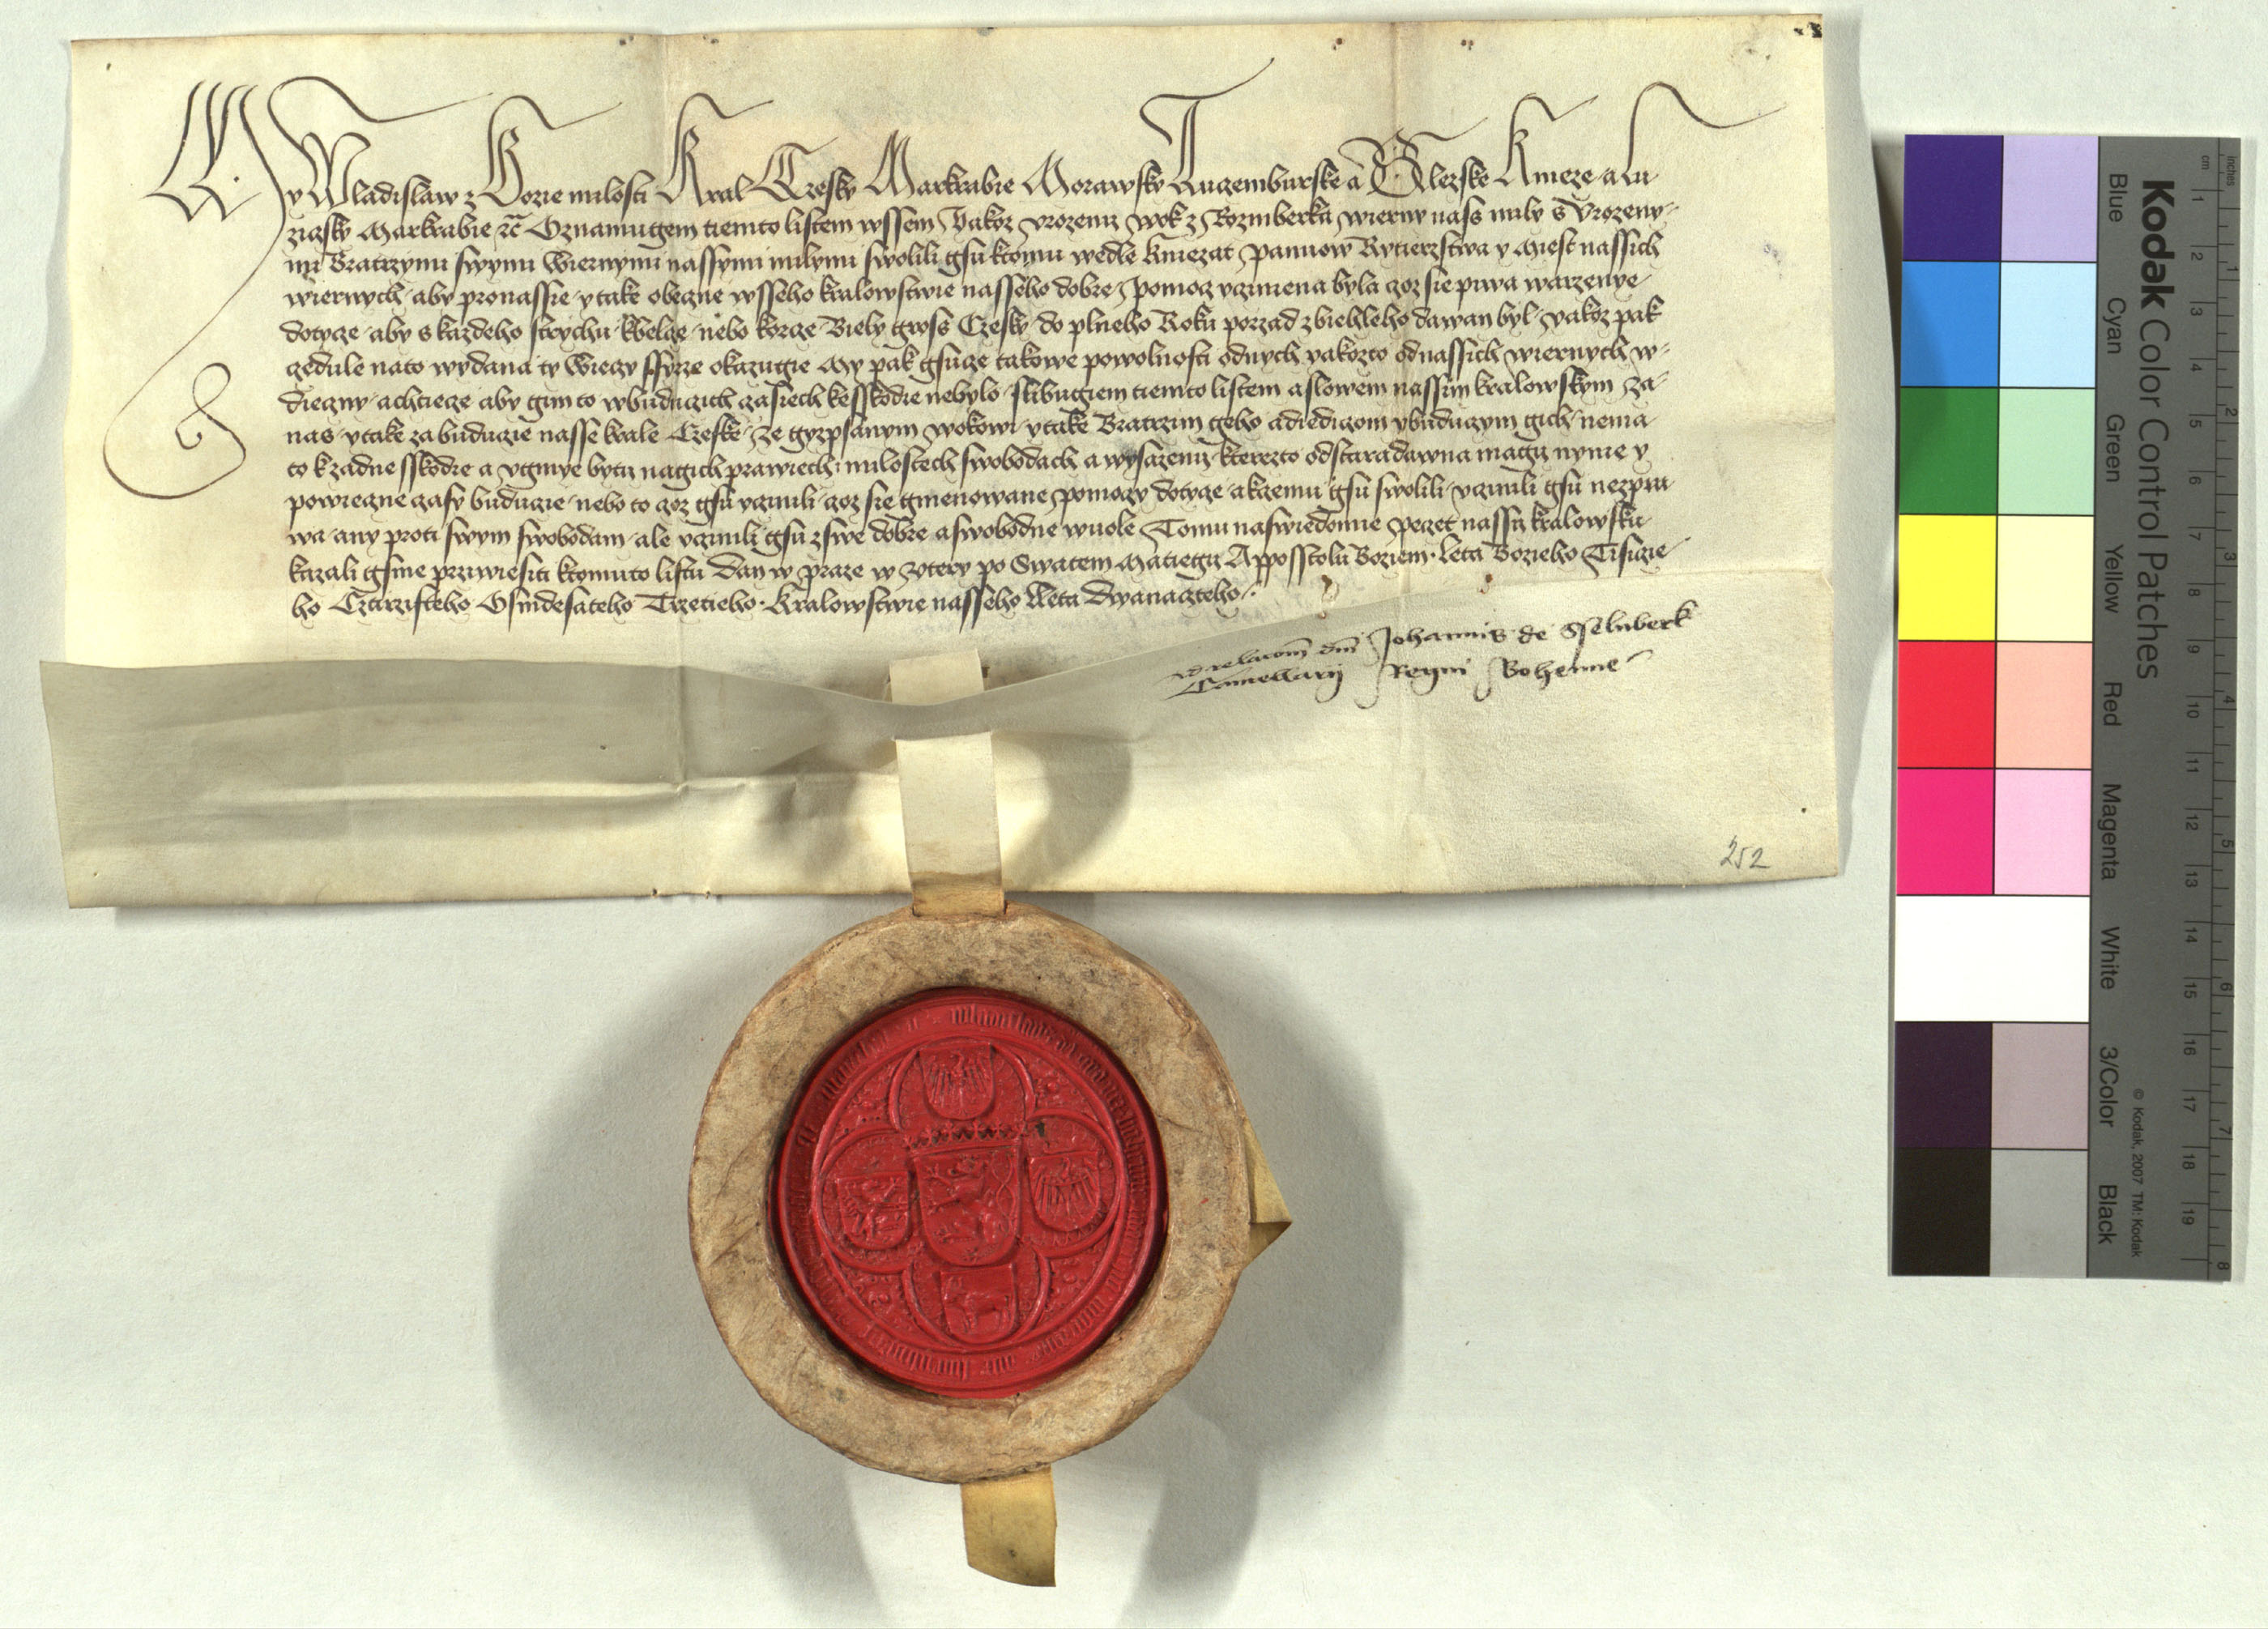 My Wladislaw z Bozie milosti Kral Czesky Markrabie Morawsky Lucemburske a Slezske Knieze a Lu
ziczsky Markrabie ꝛc̄ Oznamugem tiemto listem wssem Jakoz Urozeny Wok z Rozmberka wierny nass mily s Urozeny
mi Bratrzymi swymi Wiernymi nassymi milymi swolili gsu ktomu wedle Kniezat Pannow Rytierzstwa y Miest nassich
wiernych aby pro nassie y take obecne wsseho kralowstwie nasseho dobre Pomoc vczinena byla coz sie piwa warzenye
dotyce aby s kazdeho strychu Kbelce nebo korce Biely gross Czesky do plneho Roku porzad zbiehleho dawan byl yakoz pak
cedule nato wydana ty Wieczy ssyrze okazugie My pak gsuce takowe powolnosti od nych yakozto od nassich wiernych w
dieczny a chtiece aby gim to w buducich czasiech ke sskodie nebylo slibugiem tiemto listem a slowem nassim kralowskym za
nas y take za buducie nasse krale Czeske ze gyzpsanym Wokowi y take Bratrzim geho a diedicom y buducym gich nema
to k zadne sskodie a vgmye byti na gich prawiech milostech swobodach a wysazeni kterezto od staradawna magi nynie y
powieczne czasy buducie nebo to coz gsu vczinili coz sie gmenowane pomoczy dotyce a kczemu gsu swolili vczinili gsu ne z pra
wa any proti swym swobodam ale vczinili gsu z swe dobre a swobodne wuole Tomu na swiedomie Peczet nassi kralowsku
kazali gsme prziwiesiti k tomuto listu Dan w Praze w Utery po Swatem Matiegi Apposstolu Boziem Leta Bozieho Tisicie
ho Cztirzisteho Osmdesateho Trzetieho Kralowstwie nasseho Leta Dwanadczteho
Ad relacom̄ dn̄i Johannis de Sselnberk
Cancellarij Regni Bohemie
252
Kodak Color Control Patches
© Kodak, 2007 TM: Kodak
Blue Cyan Green Yellow Red Magenta White 3/Color Black
inches 1 2 3 4 5 6 7 8
cm 1 2 3 4 5 6 7 8 9 10 11 12 13 14 15 16 17 18 19